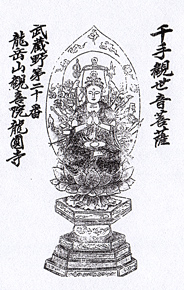 千手觀世音菩薩
武蔵野第二十番
龍岳山觀音院龍圓寺